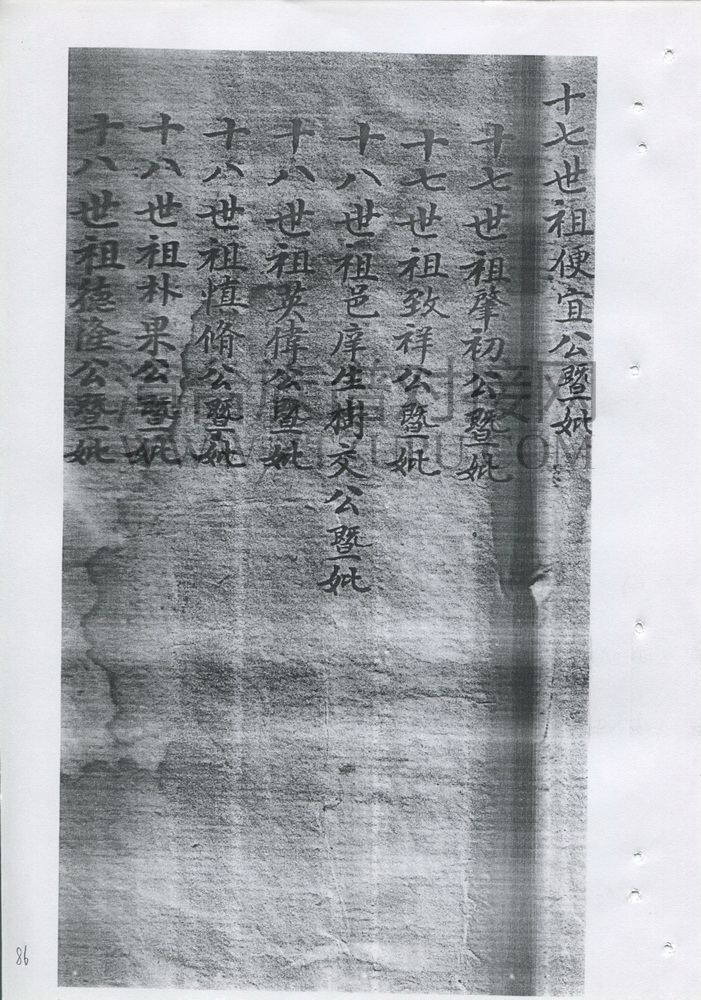 十七世祖便宜公暨妣
十七世祖肇初公暨妣
十七世祖致祥公暨妣
十八世祖邑庠生樹交公暨妣
十八世祖英偉公暨妣
十八世祖慎脩公暨妣
十八世祖朴果公暨妣
十八世祖德隆公暨妣
86